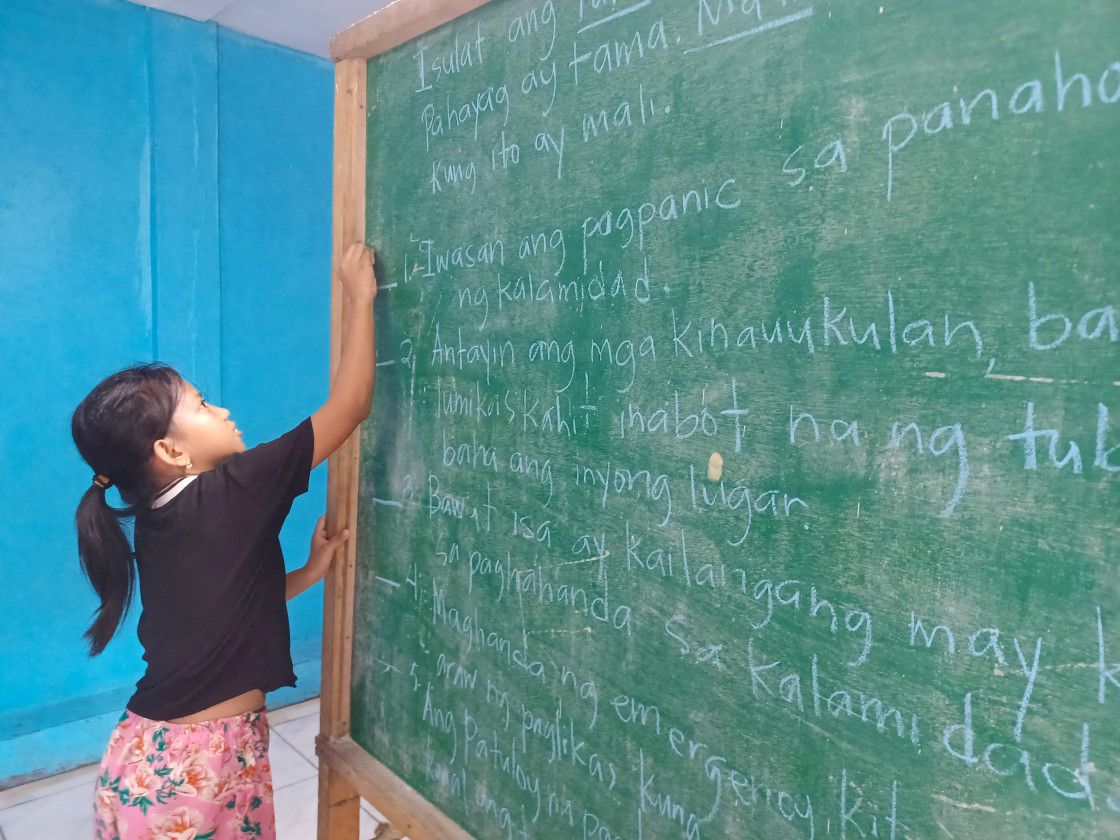 Isulat ang
Pahayag ay tama.
Kung ito ay mali.
1. Iwasan ang pagpanic sa panaho
ng kalamidad.
2. Antayin ang mga kinauukulan, ba
lumikas kahit inabot na ng tub
baha ang inyong lugar.
3. Bawat isa ay kailangang may k
sa paghahanda sa kalamidad
4. Maghanda ng emergency kit
araw ng paglikas kung
5. Ang Patuloy na pag